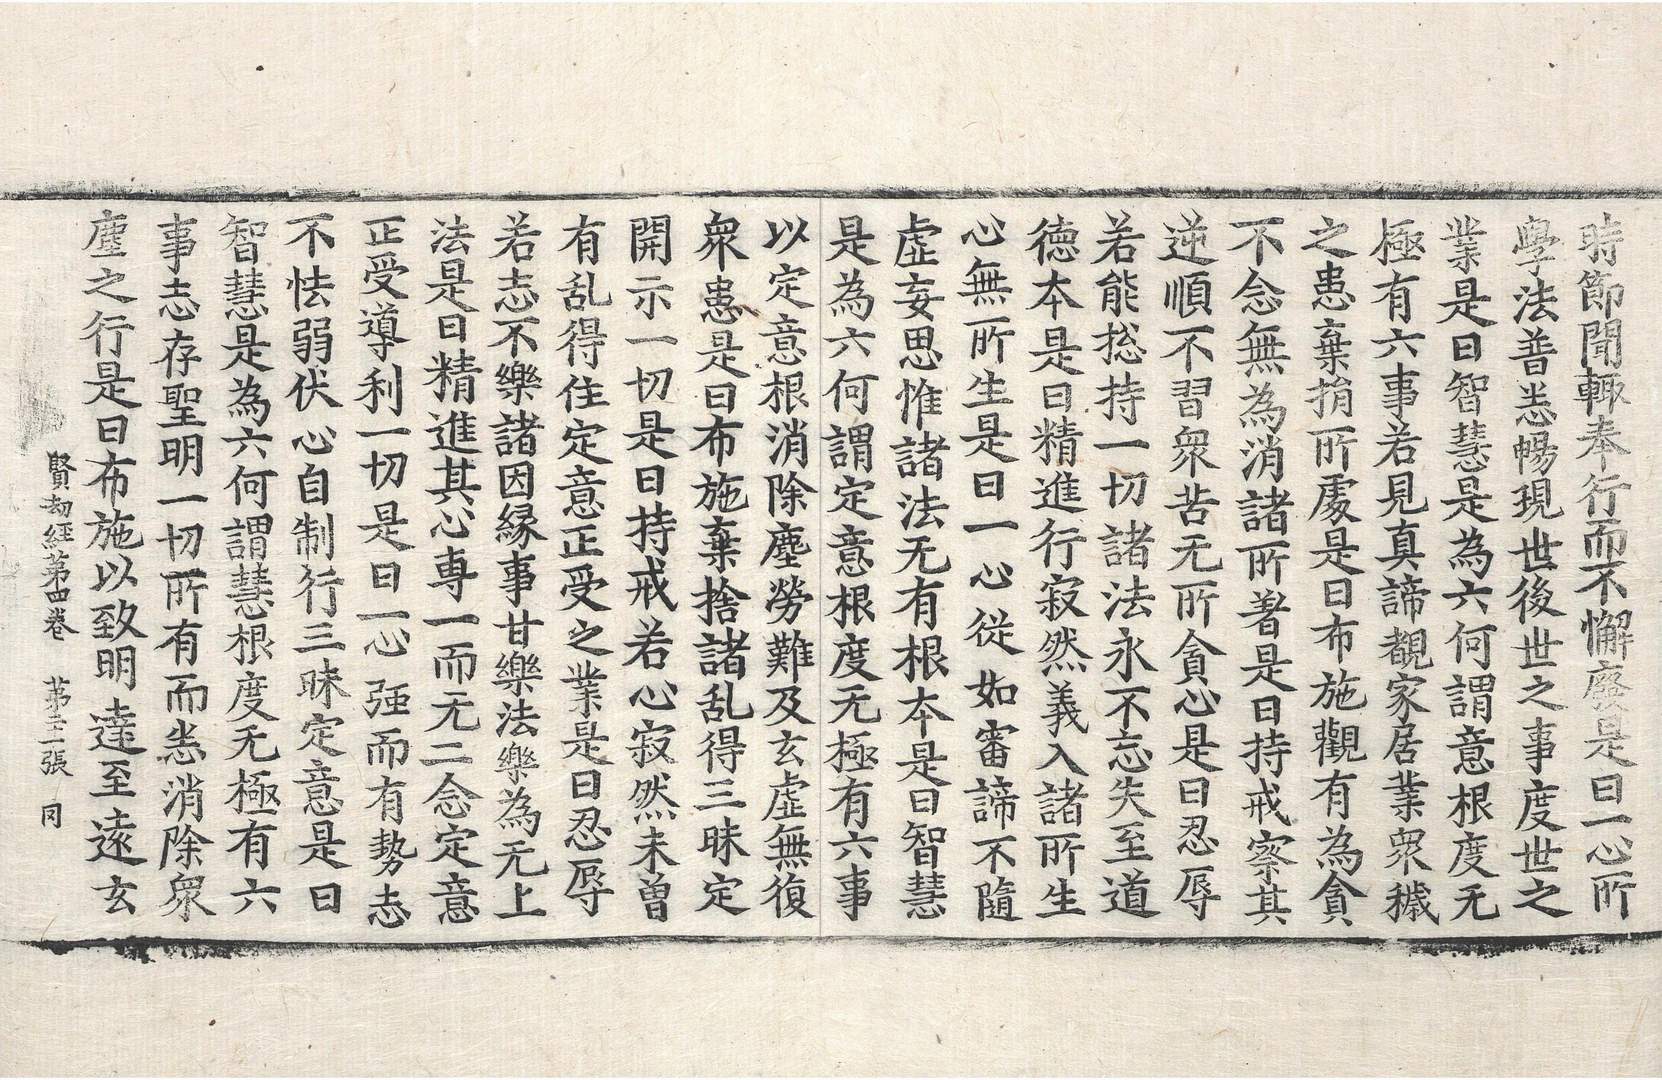 時節聞輙奉行而不懈廢是曰一心所
學法普悉暢現世後世之事度世之
業是曰智慧是為六何謂意根度无
極有六事若見真諦覩家居業衆穢
之患棄捐所處是曰布施觀有為貪
不念無為消諸所著是曰持戒察其
逆順不習衆苦无所貪心是曰忍辱
若能揔持一切諸法永不忘失至道
德本是曰精進行寂然義入諸所生
心無所生是曰一心從如審諦不隨
虛妄思惟諸法无有根本是曰智慧
是為六何謂定意根度无極有六事
以定意根消除塵勞難及玄虛無復
衆患是曰布施棄捨諸乱得三昧定
開示一切是曰持戒若心寂然未曾
有乱得住定意正受之業是曰忍辱
若志不樂諸因緣事甘樂法樂為无上
法是曰精進其心專一而无二念定意
正受導利一切是曰一心强而有勢志
不怯弱伏心自制行三昧定意是曰
智慧是為六何謂慧根度无極有六
事志存聖明一切所有而悉消除衆
塵之行是曰布施以致明達至遠玄
賢劫經第四卷 第三十二張 同